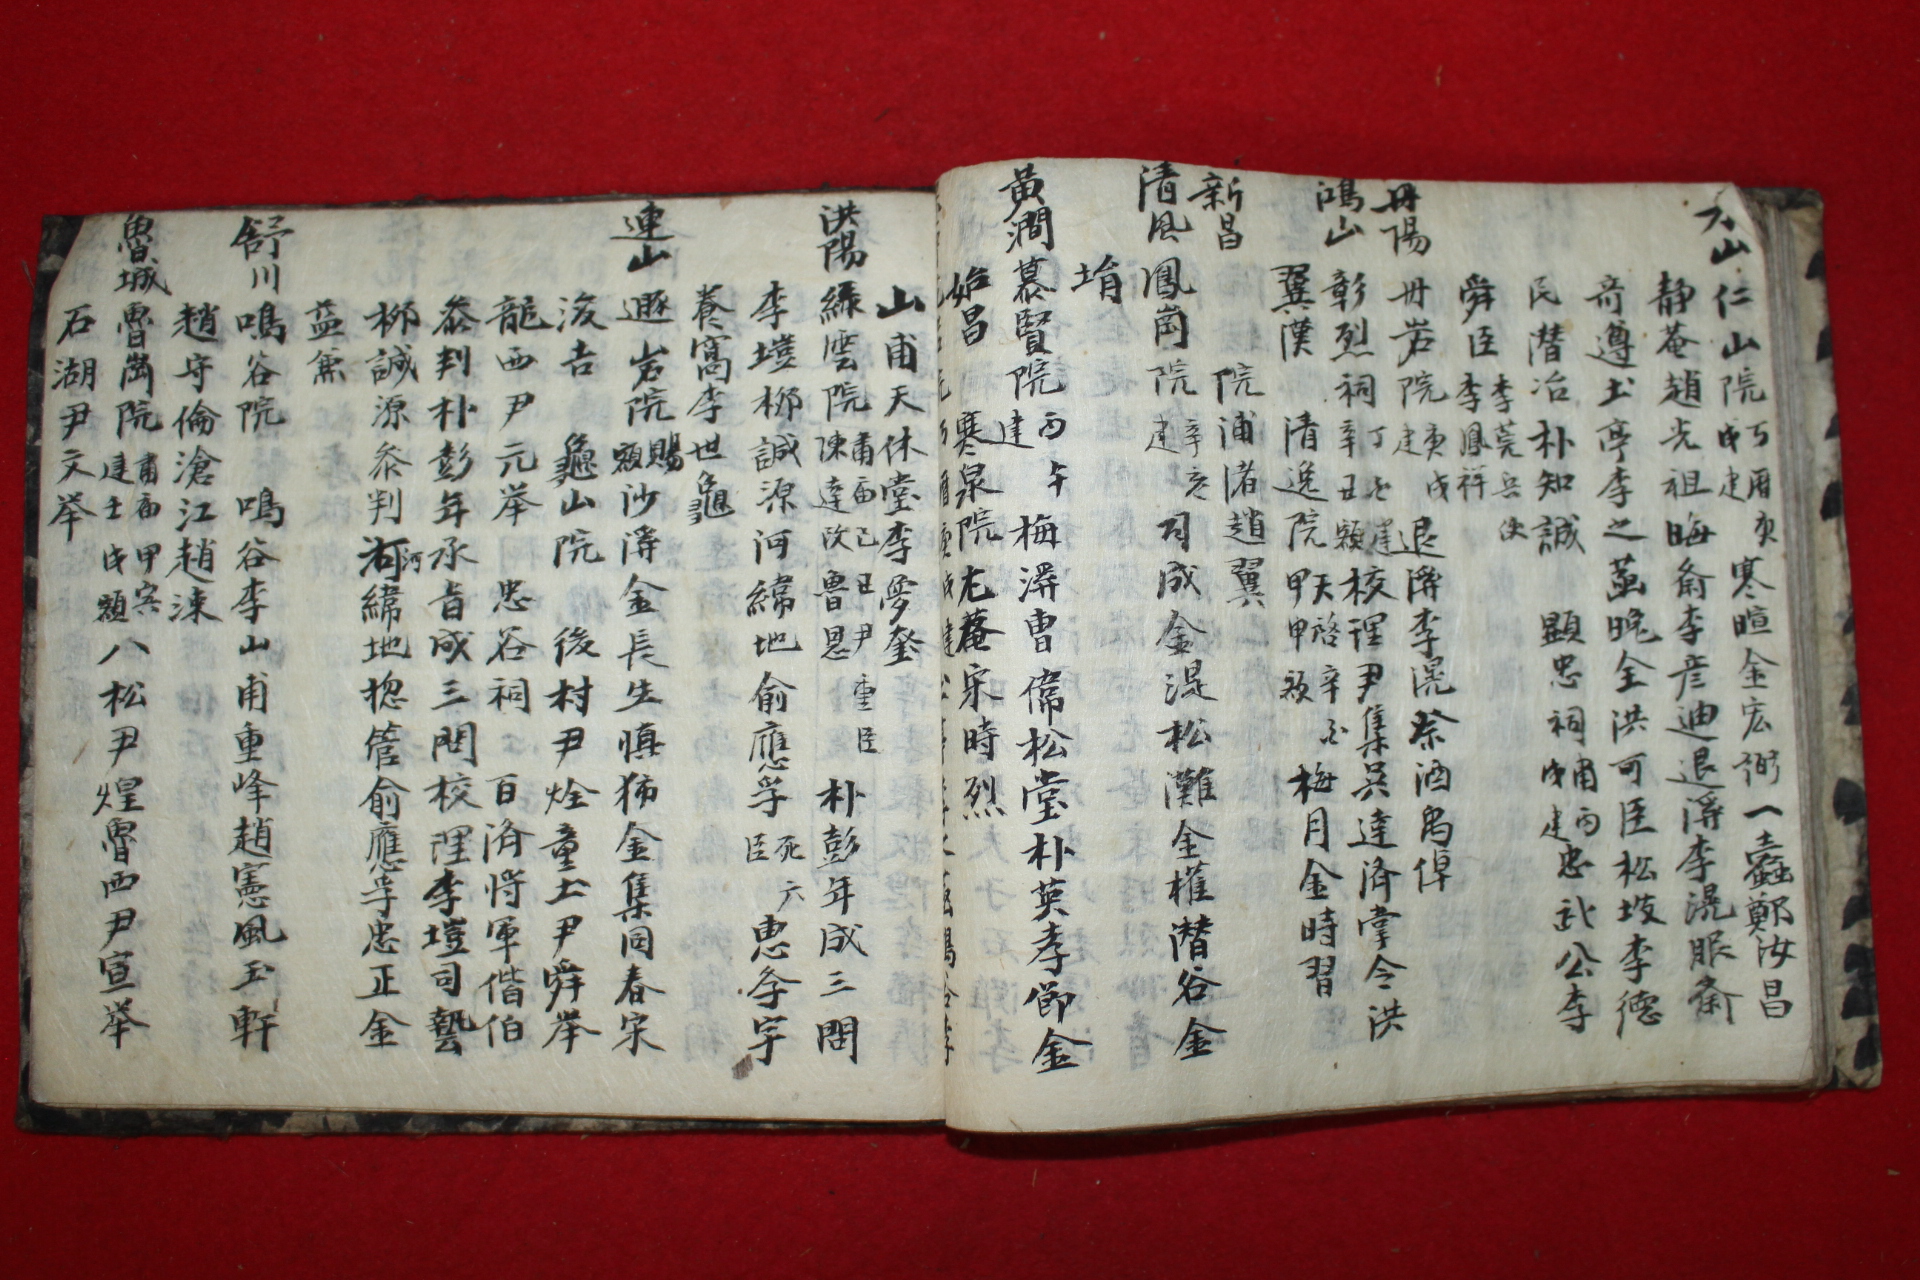 不山 仁山院 万曆庚戌建 寒暄金宏弼 一蠹鄭汝昌
靜菴趙光祖 晦齋李彦迪 退溪李滉 服齋
奇遵 土亭李之菡 晩全洪可臣 松坡李德
民 潛冶朴知誡 顯忠祠 肅丙戌建 忠武公李
舜臣 李莞兵使 李鳳祥
丹陽 丹岩院 庚戌建 退溪李滉 祭酒禹倬
鴻山 彰烈祠 丁酉建 辛丑額 校理尹集 吳達濟 掌令洪
翼漢 清逸院 天啓辛酉 甲申額 梅月金時習
新昌 院 浦渚趙翼
清風 鳳崗院 辛亥建 司成金湜 松灘金權 潛谷金
堉
黃澗 慕賢院 丙午建 梅溪曺偉 松堂朴英 孝節金
始昌 寒泉院 尤菴宋時烈
山甫 天休堂李夢奎
洪陽 綠雲院 肅丙己丑尹重臣陳達改魯恩 朴彭年 成三問
李塏 柳誠源 河緯地 俞應孚 死六臣 惠孝字
養窩李世龜
連山 遯岩院 賜額 沙溪金長生 愼獨金集 同春宋
浚吉 龜山院 後村尹烇 童土尹舜擧
龍西尹元擧 忠谷祠 百濟將軍偕伯
叅判朴彭年 承旨成三問 校理李塏 司藝
柳誠源 叅判河緯地 摠管俞應孚 忠正金
益兼
舒川 鳴谷院 鳴谷李山甫 重峰趙憲 風玉軒
趙守倫 滄江趙涑
魯城 魯崗院 肅丙甲寅建壬戌額 八松尹煌 魯西尹宣擧
石湖尹文擧